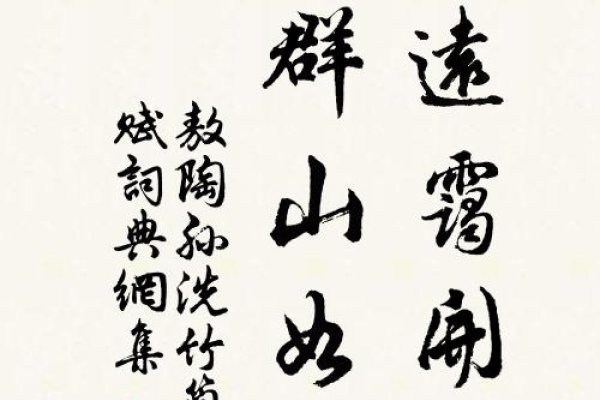 遠靄開
群山如
敖陶孫洗竹
賦詞典網集